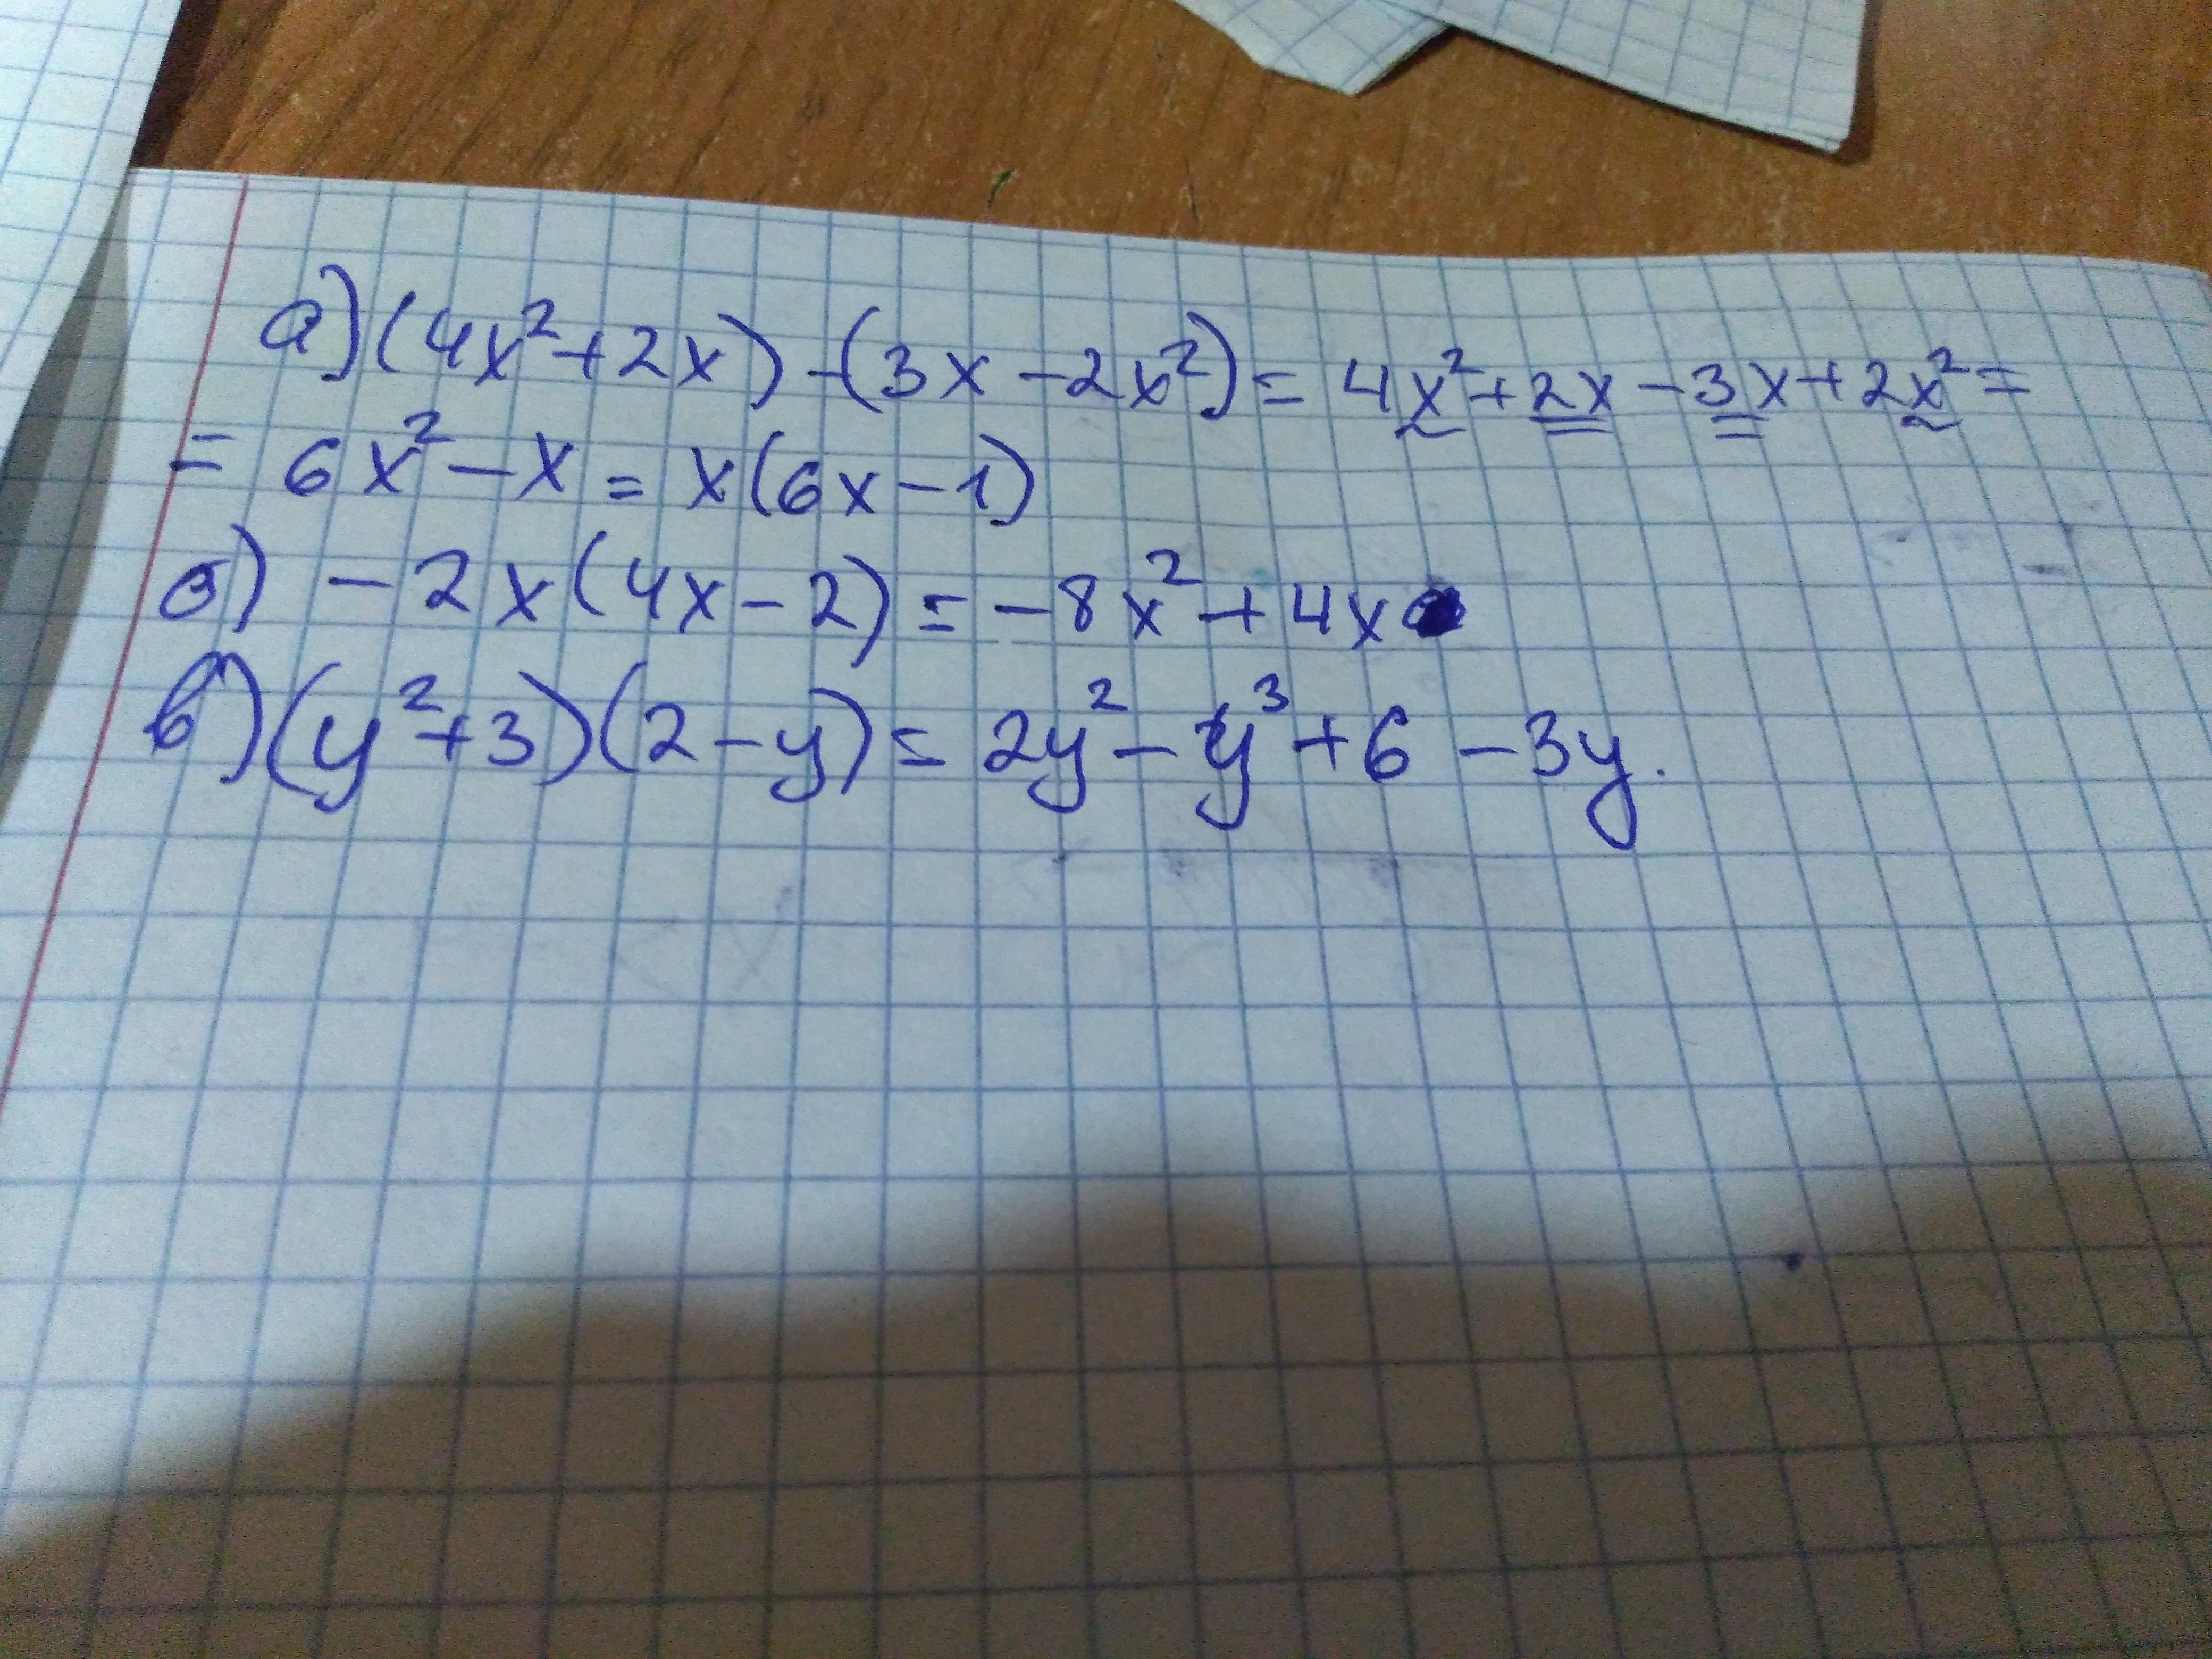 а) (4x²+2x)-(3x-2x²)= 4x²+2x-3x+2x²=
= 6x²-x = x(6x-1)
б) -2x(4x-2)=-8x²+4x
в) (y²+3)(2-y)= 2y²-y³+6-3y.